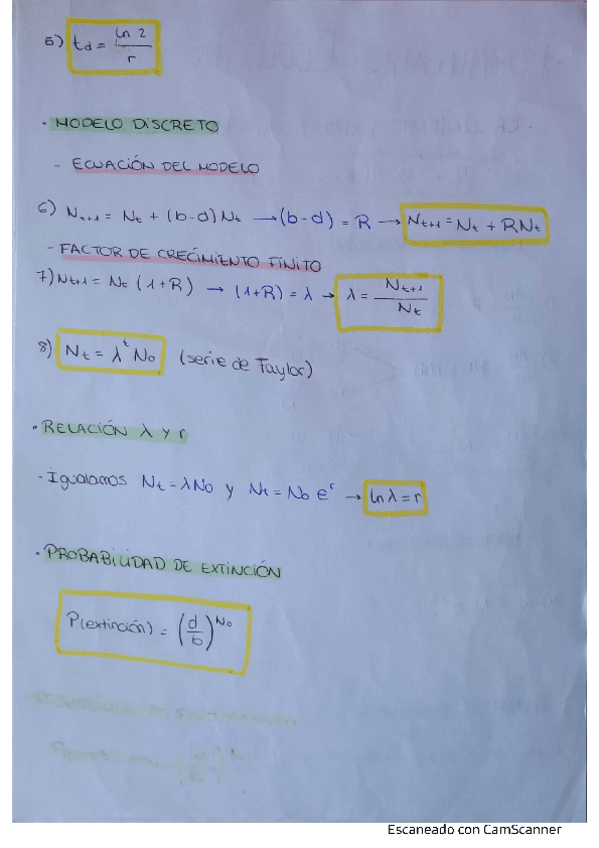 5) td = ln 2 / r
· MODELO DISCRETO
- ECUACIÓN DEL MODELO
6) Nt+1 = Nt + (b-d)Nt → (b-d) = R → Nt+1 = Nt + RNt
- FACTOR DE CRECIMIENTO FINITO
7) Nt+1 = Nt (1+R) → (1+R) = λ → λ = Nt+1 / Nt
8) Nt = λ^t No (serie de Taylor)
· RELACIÓN λ Y r
- Igualamos Nt = λNo y Nt = No e^r → ln λ = r
· PROBABILIDAD DE EXTINCIÓN
P(extinción) = (d/b)^No
Escaneado con CamScanner